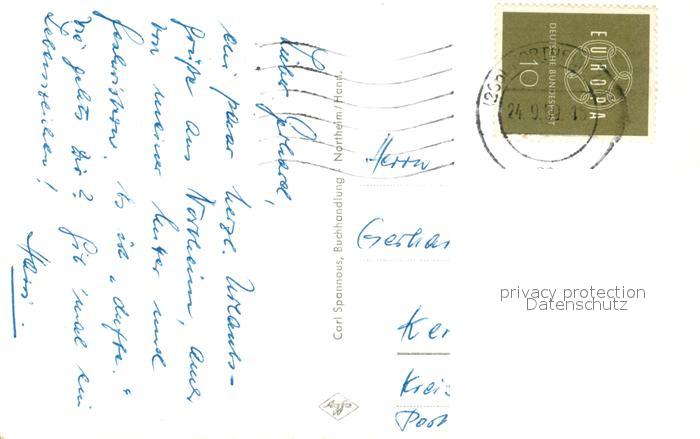 Lieber Gerhard,
ein paar herzl. Urlaubs-
grüße aus Northeim, einer
von meiner Mutter und
"dufte."
Wie gehts Dir? Gib 'mal ein
Lebenszeichen!
Hans
Carl Spannaus, Buchhandlung · Northeim/Hann.
Herrn
Gerhar
Ker
Kreis
Post
EUROPA
DEUTSCHE BUNDESPOST
10
24.9.59
privacy protection
Datenschutz